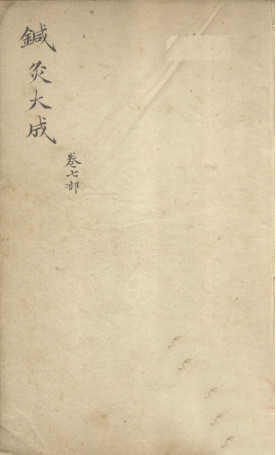 鍼灸大成
卷七部